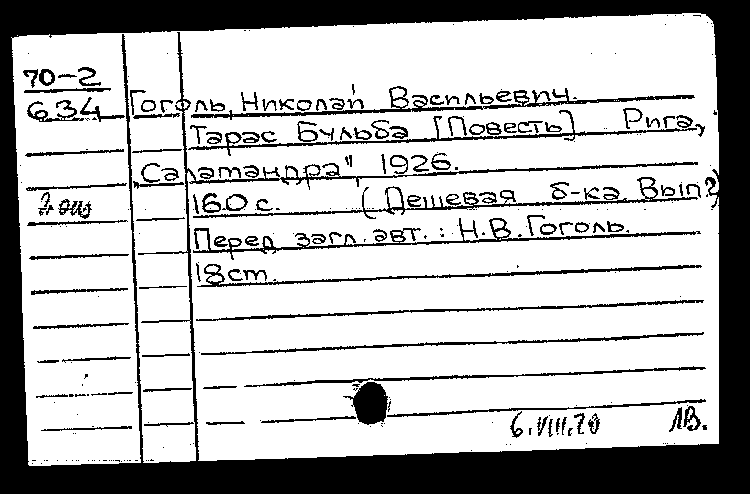 70-2
634 Гоголь, Николай Васильевич.
Тарас Бульба [Повесть] Рига,
"Саламандра", 1926.
160 с. (Дешевая б-ка. Вып 2)
Перед загл. авт.: Н.В. Гоголь.
18 cm.
6.VIII.70 ЛВ.